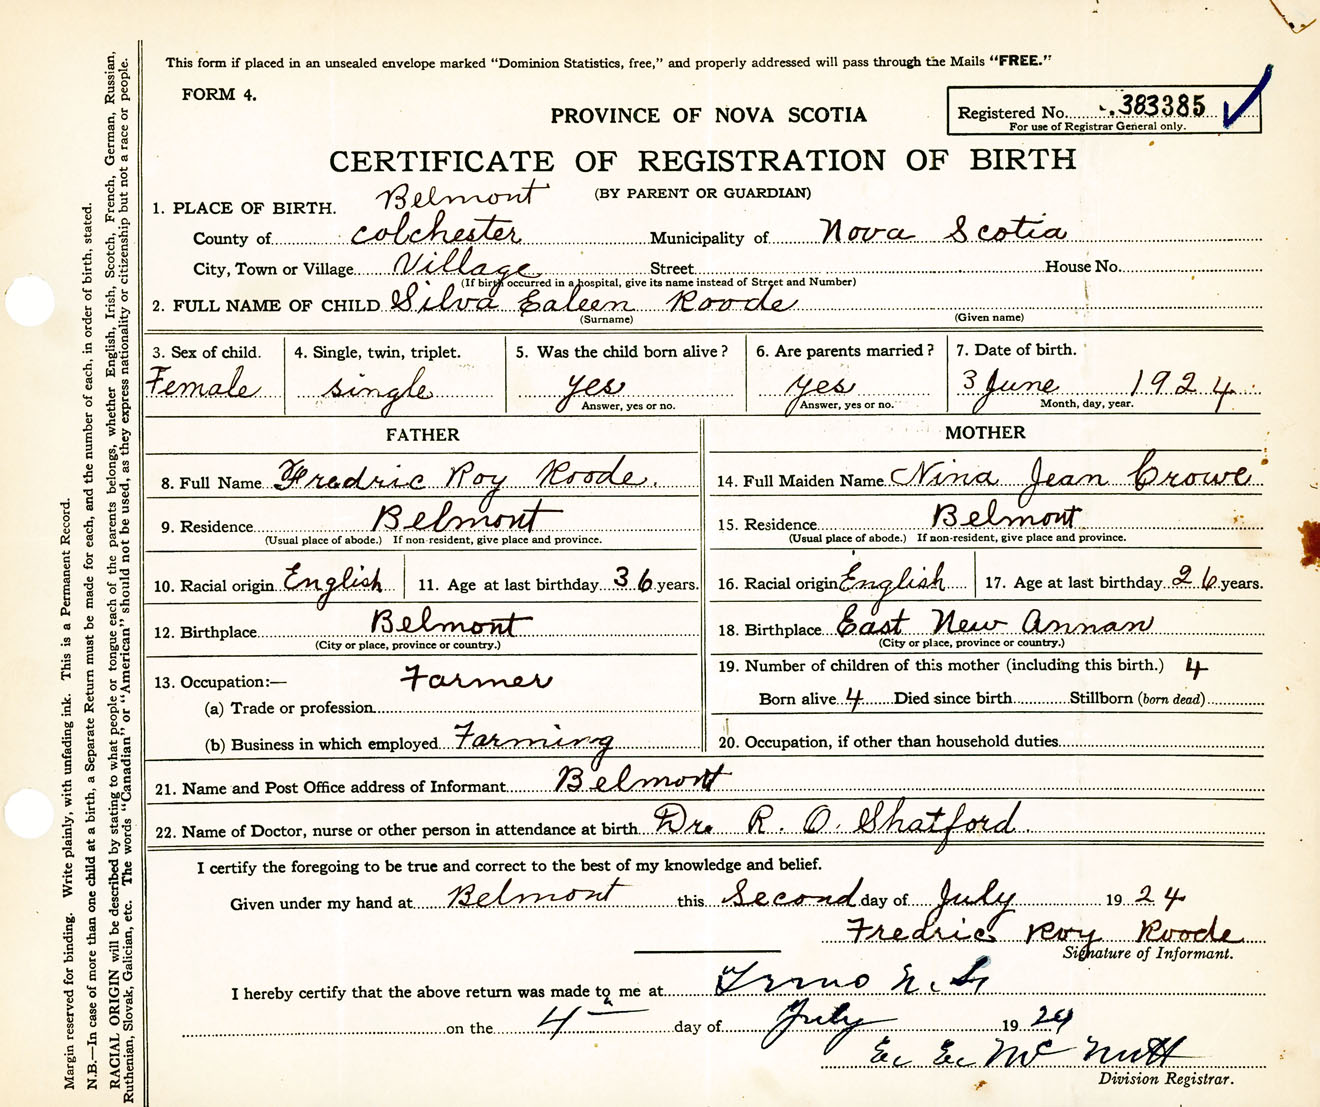 This form if placed in an unsealed envelope marked "Dominion Statistics, free," and properly addressed will pass through the Mails "FREE."
FORM 4.
PROVINCE OF NOVA SCOTIA
Registered No. 383385
For use of Registrar General only.
CERTIFICATE OF REGISTRATION OF BIRTH
(BY PARENT OR GUARDIAN)
1. PLACE OF BIRTH. Belmont
County of Colchester Municipality of Nova Scotia
City, Town or Village Village Street House No.
(If birth occurred in a hospital, give its name instead of Street and Number)
2. FULL NAME OF CHILD Silva Ealeen Roode
(Surname) (Given name)
3. Sex of child. 4. Single, twin, triplet. 5. Was the child born alive? 6. Are parents married? 7. Date of birth.
Female single yes yes 3 June 1924
Answer, yes or no. Answer, yes or no. Month, day, year.
FATHER MOTHER
8. Full Name Fredric Roy Roode. 14. Full Maiden Name Nina Jean Crowe
9. Residence Belmont 15. Residence Belmont
(Usual place of abode.) If non-resident, give place and province. (Usual place of abode.) If non-resident, give place and province.
10. Racial origin English 11. Age at last birthday 36 years. 16. Racial origin English 17. Age at last birthday 26 years.
12. Birthplace Belmont 18. Birthplace East New Annan
(City or place, province or country.) (City or place, province or country.)
13. Occupation:— Farmer 19. Number of children of this mother (including this birth.) 4
(a) Trade or profession Born alive 4 Died since birth Stillborn (born dead)
(b) Business in which employed Farming 20. Occupation, if other than household duties
21. Name and Post Office address of Informant Belmont
22. Name of Doctor, nurse or other person in attendance at birth Dr. R. O. Shatford.
I certify the foregoing to be true and correct to the best of my knowledge and belief.
Given under my hand at Belmont this Second day of July 1924
Fredric Roy Roode
Signature of Informant.
I hereby certify that the above return was made to me at Truro N.S.
on the 4 day of July 1924
E. E. McNutt
Division Registrar.
Margin reserved for binding. Write plainly, with unfading ink. This is a Permanent Record.
N.B.—In case of more than one child at a birth, a Separate Return must be made for each, and the number of each, in order of birth, stated.
RACIAL ORIGIN will be described by stating to what people or tongue each of the parents belongs, whether English, Irish, Scotch, French, German, Russian,
Ruthenian, Slovak, Galician, etc. The words "Canadian" or "American" should not be used, as they express nationality or citizenship but not a race or people.